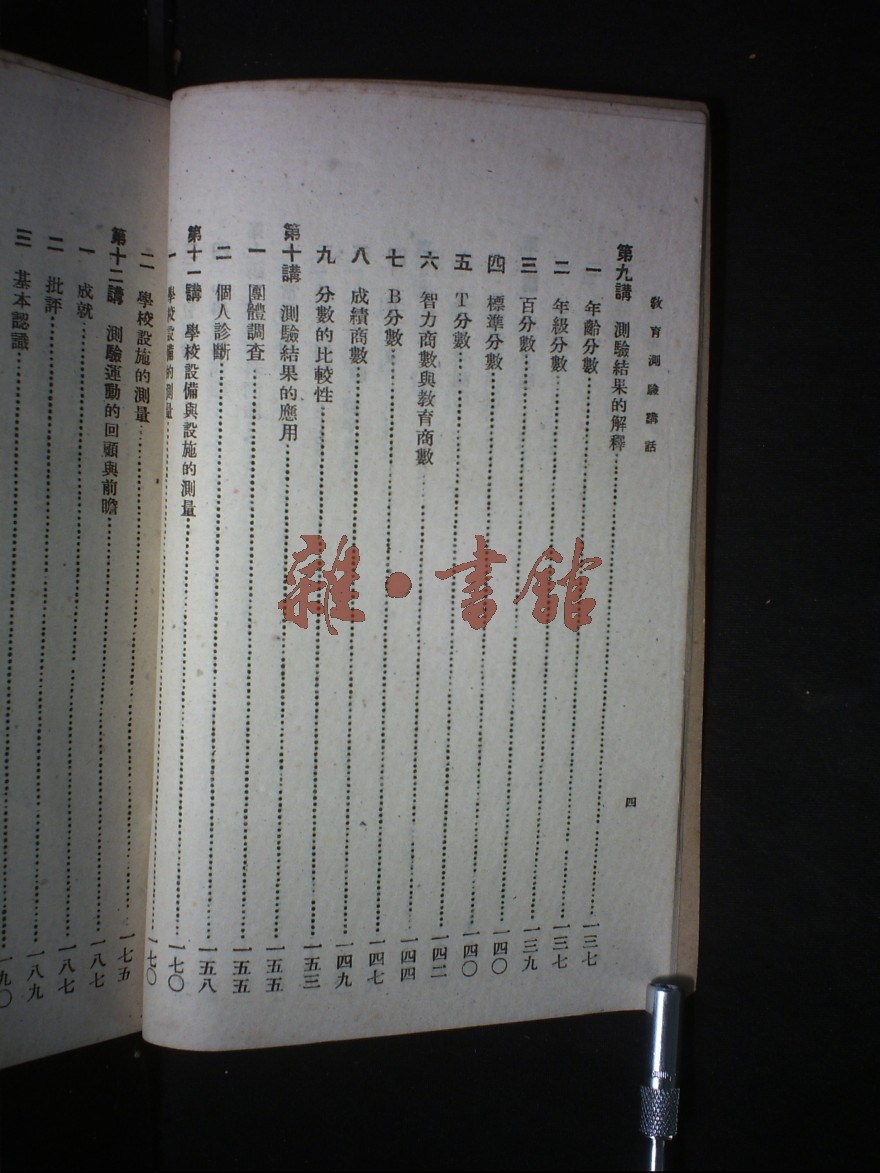 教育測驗講話
四
第九講 測驗結果的解釋……一三七
一 年齡分數……一三七
二 年級分數……一三九
三 百分數……一四〇
四 標準分數……一四〇
五 T分數……一四二
六 智力商數與教育商數……一四四
七 B分數……一四七
八 成績商數……一四九
九 分數的比較性……一五三
第十講 測驗結果的應用……一五五
一 團體調查……一五五
二 個人診斷……一五八
第十一講 學校設備與設施的測量……一七〇
一 學校設備的測量……一七〇
二 學校設施的測量……一七五
第十二講 測驗運動的回顧與前瞻……一八七
一 成就……一八七
二 批評……一八九
三 基本認識……一九〇
雜·書館